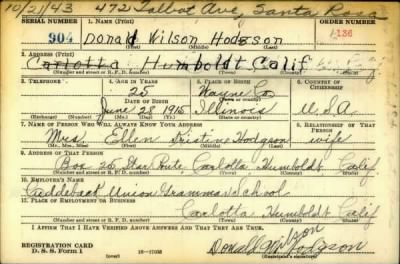 10/2/43 472 Talbot Ave, Santa Rosa
SERIAL NUMBER 1. NAME (Print) ORDER NUMBER
904 Donald Wilson Hodgson 136
(First) (Middle) (Last)
2. ADDRESS (Print)
Carlotta Humboldt Calif
(Number and street or R. F. D. number) (Town) (County) (State)
3. TELEPHONE 4. AGE IN YEARS 5. PLACE OF BIRTH 6. COUNTRY OF CITIZENSHIP
25 Wayne Co.
DATE OF BIRTH (Town or county)
June 28 1915 Illinois U.S.A.
(Exchange) (Number) (Mo.) (Day) (Yr.) (State or country)
7. NAME OF PERSON WHO WILL ALWAYS KNOW YOUR ADDRESS 8. RELATIONSHIP OF THAT PERSON
Mrs. Ellen Kristine Hodgson wife
(Mr., Mrs., Miss) (First) (Middle) (Last)
9. ADDRESS OF THAT PERSON
Box 25 Star Route Carlotta, Humboldt Calif
(Number and street or R. F. D. number) (Town) (County) (State)
10. EMPLOYER'S NAME
Cuddeback Union Grammar School
11. PLACE OF EMPLOYMENT OR BUSINESS
Carlotta, Humboldt Calif
(Number and street or R. F. D. number) (Town) (County) (State)
I AFFIRM THAT I HAVE VERIFIED ABOVE ANSWERS AND THAT THEY ARE TRUE.
REGISTRATION CARD
D. S. S. Form 1 Donald Wilson Hodgson
(Registrant's signature)